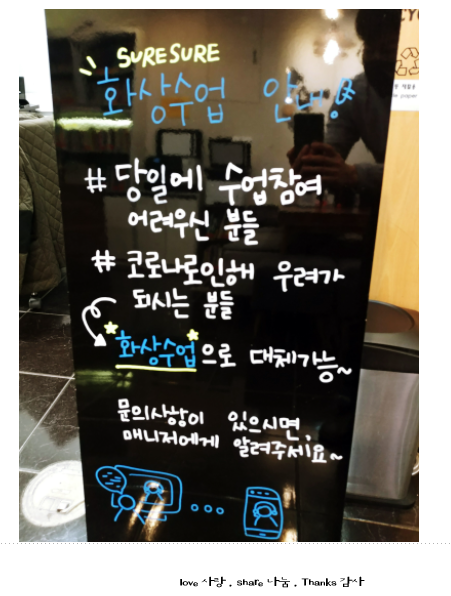 SURESURE
화상수업 안내
# 당일에 수업참여
어려우신 분들
# 코로나로인해 우려가
되시는 분들
화상수업으로 대체가능~
문의사항이 있으시면,
매니저에게 알려주세요~
love 사랑 . share 나눔 . Thanks 감사